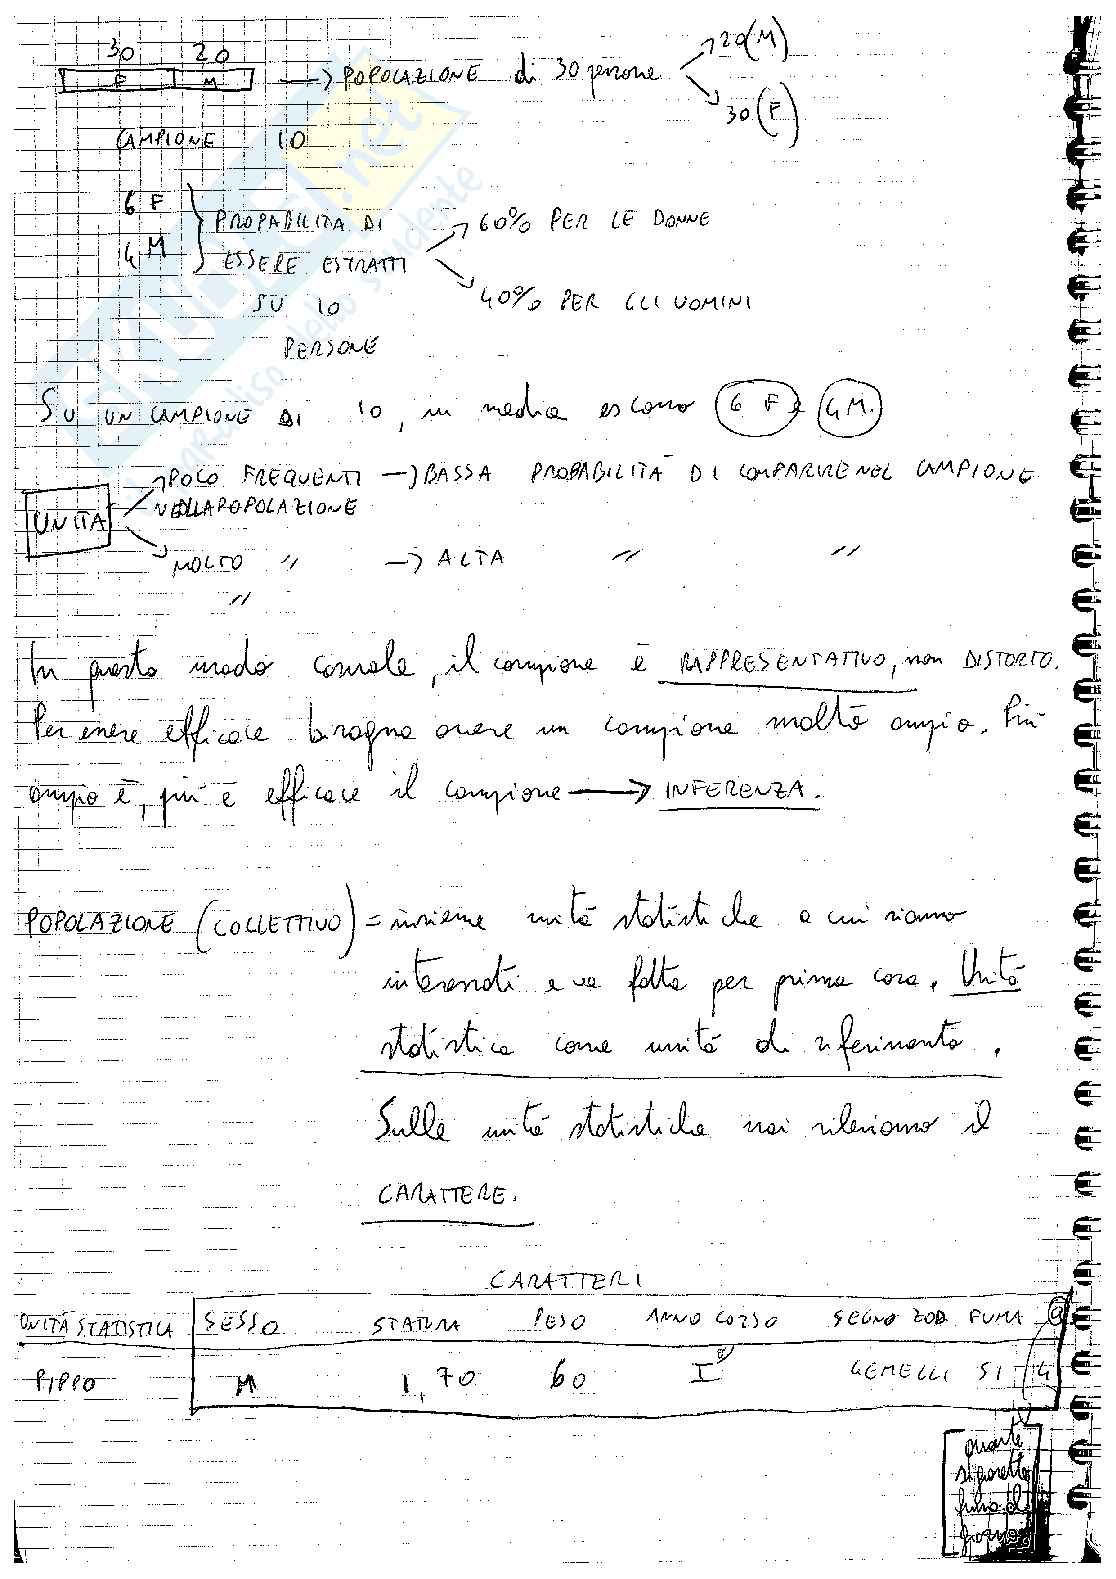 30 20
F M → POPOLAZIONE di 30 persone 20 (M)
30 (F)
CAMPIONE 10
6 F
4 M
PROBABILITÀ DI
ESSERE ESTRATTI
SU 10
PERSONE
60% PER LE DONNE
40% PER GLI UOMINI
SU UN CAMPIONE DI 10, in media escono 6 F e 4 M.
UNITÀ
POCO FREQUENTI → BASSA PROBABILITÀ DI COMPARIRE NEL CAMPIONE
NELLA POPOLAZIONE
MOLTO " → ALTA " "
"
In questo modo casuale, il campione è RAPPRESENTATIVO, non DISTORTO.
Per essere efficace bisogna avere un campione molto ampio. Più
ampio è, più è efficace il campione → INFERENZA.
POPOLAZIONE (COLLETTIVO) = insieme unità statistiche a cui siamo
interessati e va fatta per prima cosa. Unità
statistica come unità di riferimento.
Sulle unità statistiche noi rileviamo il
CARATTERE.
CARATTERI
UNITÀ STATISTICA SESSO STATURA PESO ANNO CORSO SEGNO ZOD. FUMA
PIPPO M 1,70 60 I° GEMELLI SI 4
quante
sigarette
fuma al
giorno